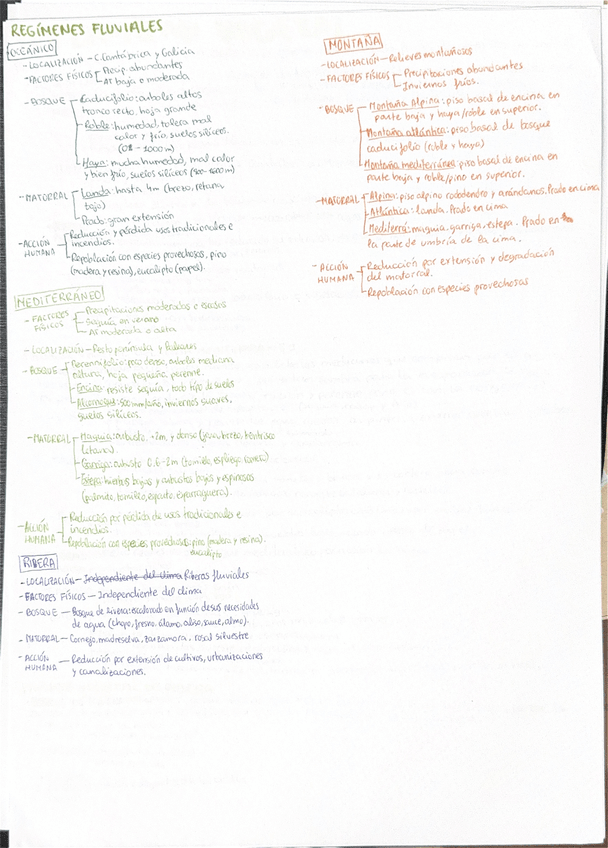 REGÍMENES FLUVIALES
OCEÁNICO
- LOCALIZACIÓN - C. Cantábrica y Galicia
- FACTORES FÍSICOS Precip. abundantes
AT baja o moderada
- BOSQUE Caducifolio: árboles altos
tronco recto, hoja grande
Roble: humedad, tolera mal
calor y frío, suelos silíceos.
Haya: mucha humedad, mal calor
y bien frío, suelos silíceos
- MATORRAL Landa: hasta 4m (brezo, retama,
tojo)
Prado: gran extensión
- ACCIÓN HUMANA Reducción y pérdida usos tradicionales e
incendios.
Repoblación con especies provechosas, pino
(madera y resina), eucalipto (papel).
MEDITERRÁNEO
- FACTORES FÍSICOS Precipitaciones moderadas o escasas
Sequía en verano
AT moderada o alta
- LOCALIZACIÓN - Resto península y Baleares
- BOSQUE Perennifolio: poco denso, árboles mediana
altura, hoja pequeña, perenne.
Encina: resiste sequía, todo tipo de suelos
Alcornoque: 500mm/año, inviernos suaves,
suelos silíceos.
- MATORRAL Maquia: arbusto, +2m, y denso (jara, brezo, lentisco
Garriga: arbusto 0.5-2m (tomillo, espliego, romero)
Estepa: hierbas bajas y arbustos bajos y espinosos
(palmito, tomillo, esparto, esparraguera).
- ACCIÓN HUMANA Reducción por pérdida de usos tradicionales e
incendios
Repoblación con especies provechosas: pino (madera y resina).
eucalipto
RIBERA
- LOCALIZACIÓN - Independiente del clima Riberas fluviales
- FACTORES FÍSICOS - Independiente del clima
- BOSQUE - Bosque de rivera: escalonado en función de sus necesidades
de agua (chopo, fresno, álamo, aliso, sauce, olmo).
- MATORRAL - Cornejo, madreselva, zarzamora, rosal silvestre
- ACCIÓN HUMANA - Reducción por extensión de cultivos, urbanizaciones
y canalizaciones.
MONTAÑA
- LOCALIZACIÓN - Relieves montañosos
- FACTORES FÍSICOS Precipitaciones abundantes
Inviernos fríos.
- BOSQUE Montaña Alpina: piso basal de encina en
parte baja y haya/roble en superior.
Montaña atlántica: piso basal de bosque
caducifolio (roble y haya)
Montaña mediterránea: piso basal de encina en
parte baja y roble/pino en superior.
- MATORRAL Alpina: piso alpino rododendro y arándanos. Prado en cima
Atlántica: landa. Prado en cima
Mediterrá: maquia, garriga, estepa. Prado en
la parte de umbría de la cima.
- ACCIÓN HUMANA Reducción por extensión y degradación
del matorral.
Repoblación con especies provechosas